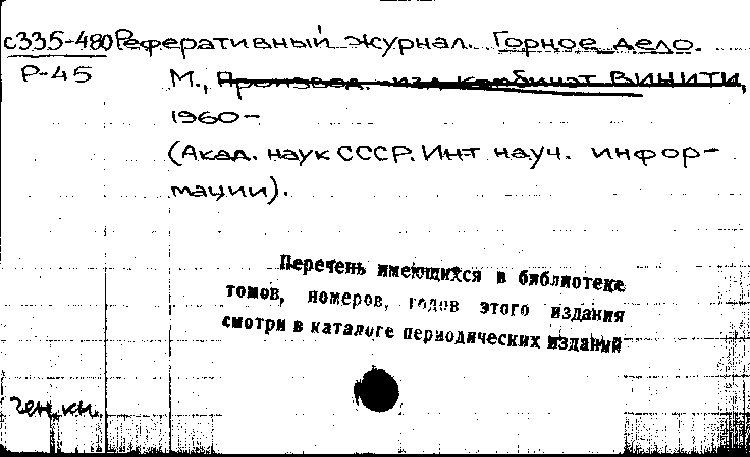 с335-480 Реферативный журнал. Горное дело.
Р-45 М., Производ.-изд. комбинат ВИНИТИ,
1960-
(Акад. наук СССР. Ин-т науч. инфор-
мации).
Перечень имеющихся в библиотеке
томов, номеров, годов этого издания
смотри в каталоге периодических изданий
ген.кн.